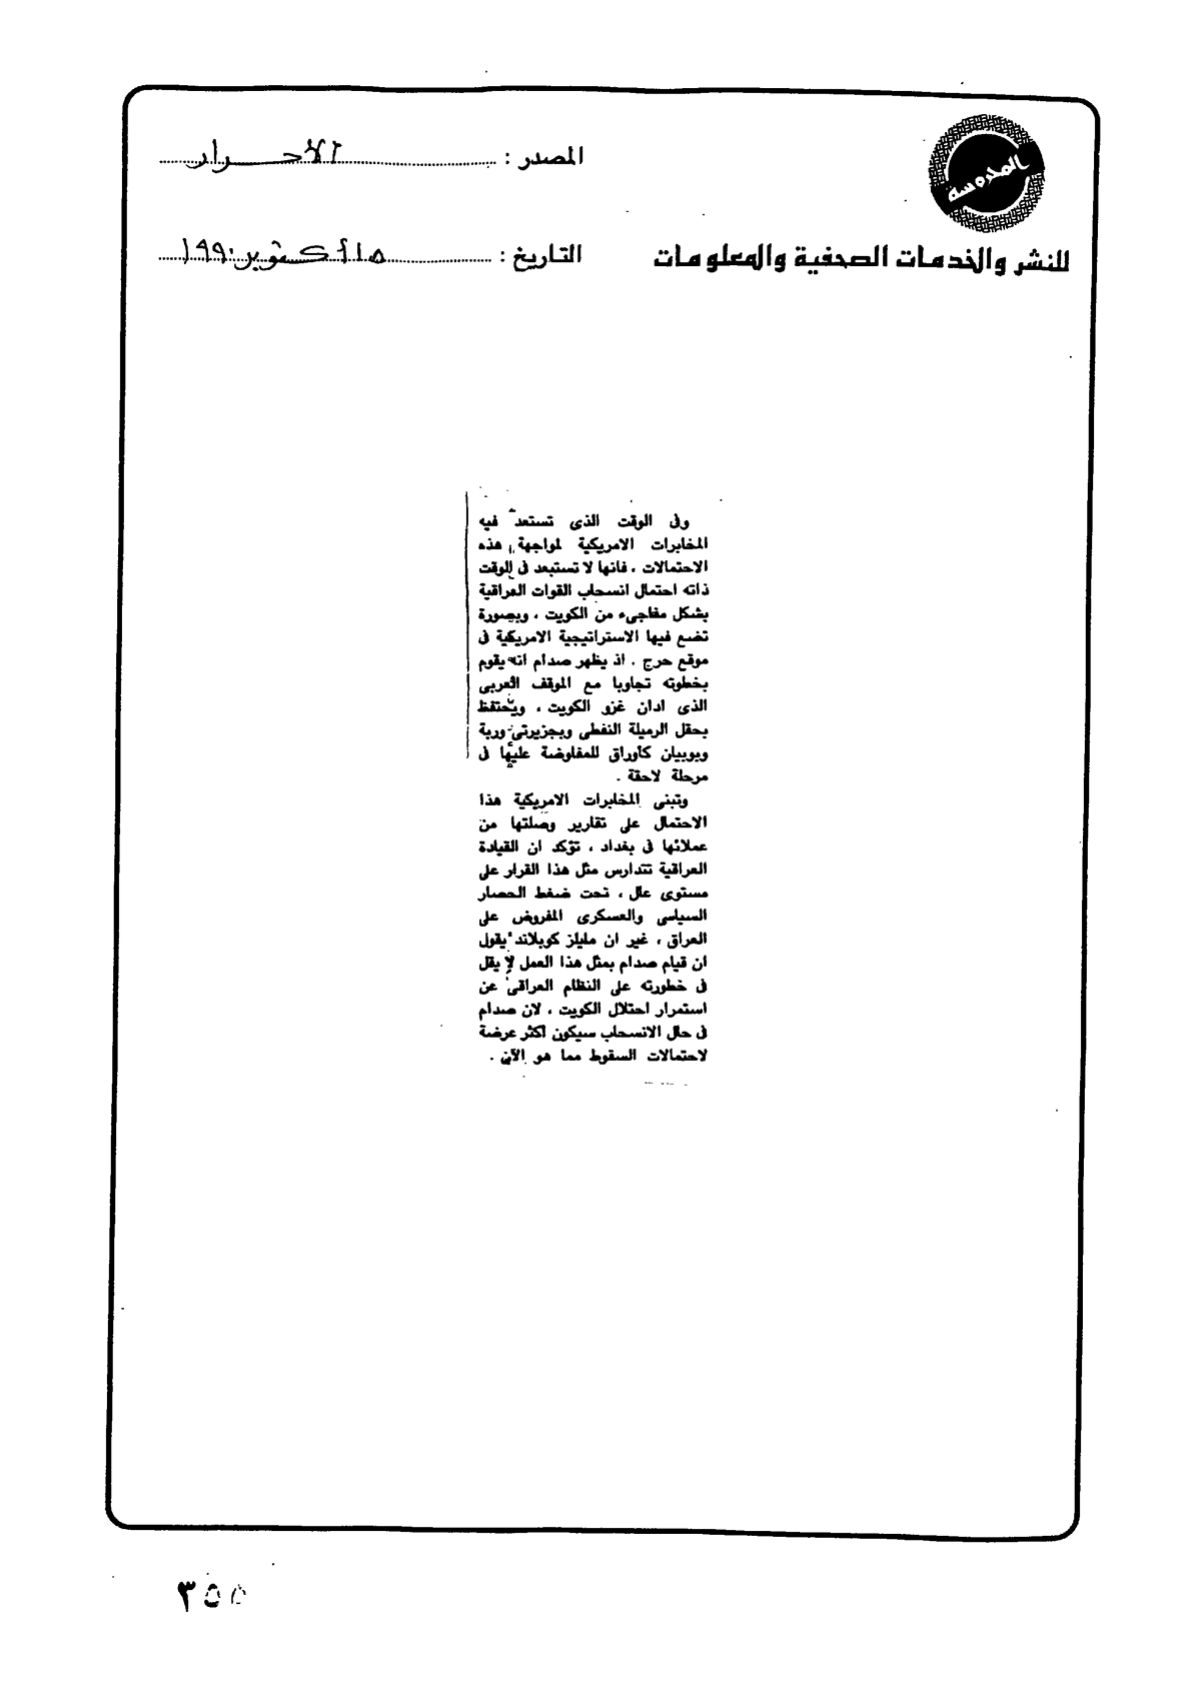 المحروسة
للنشر والخدمات الصحفية والمعلومات
المصدر : الأحرار
التاريخ : ١٥ أكتوبر ١٩٩٠
وفى الوقت الذى تستعد فيه
المخابرات الامريكية لمواجهة هذه
الاحتمالات ، فانها لا تستبعد فى الوقت
ذاته احتمال انسحاب القوات العراقية
بشكل مفاجىء من الكويت ، وبصورة
تضع فيها الاستراتيجية الامريكية فى
موقع حرج . اذ يظهر صدام انه يقوم
بخطوته تجاوبا مع الموقف العربى
الذى ادان غزو الكويت ، ويحتفظ
بحقل الرميلة النفطى وبجزيرتى وربة
وبوبيان كأوراق للمفاوضة عليها فى
مرحلة لاحقة .
وتبنى المخابرات الامريكية هذا
الاحتمال على تقارير وصلتها من
عملائها فى بغداد ، تؤكد ان القيادة
العراقية تتدارس مثل هذا القرار على
مستوى عال ، تحت ضغط الحصار
السياسى والعسكرى المفروض على
العراق ، غير ان مايلز كوبلاند يقول
ان قيام صدام بمثل هذا العمل لا يقل
فى خطورته على النظام العراقى عن
استمرار احتلال الكويت ، لان صدام
فى حال الانسحاب سيكون اكثر عرضة
لاحتمالات السقوط مما هو الآن .
٣٥٥